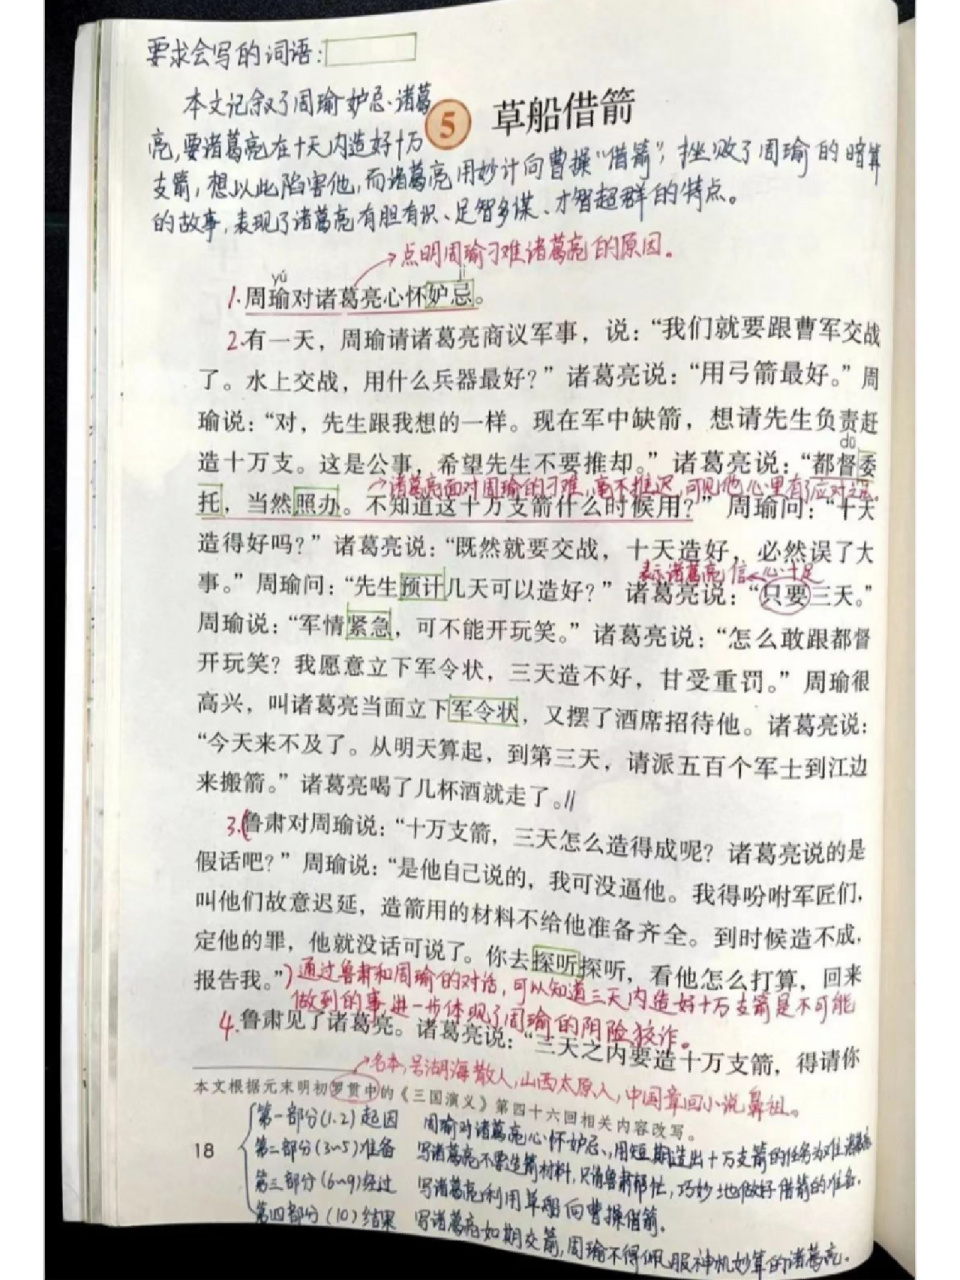 要求会写的词语：
本文记叙了周瑜妒忌诸葛
亮，要诸葛亮在十天内造好十万
支箭，想以此陷害他，而诸葛亮用妙计向曹操“借箭”，挫败了周瑜的暗算
的故事，表现了诸葛亮有胆有识、足智多谋、才智超群的特点。
5 草船借箭
点明周瑜刁难诸葛亮的原因。
yú jì
1.周瑜对诸葛亮心怀妒忌。
2.有一天，周瑜请诸葛亮商议军事，说：“我们就要跟曹军交战
了。水上交战，用什么兵器最好？”诸葛亮说：“用弓箭最好。”周
瑜说：“对，先生跟我想的一样。现在军中缺箭，想请先生负责赶
dū
造十万支。这是公事，希望先生不要推却。”诸葛亮说：“都督委
诸葛亮面对周瑜的刁难，毫不推迟，可见他心里有了应对之
托，当然照办。不知道这十万支箭什么时候用？”周瑜问：“十天
造得好吗？”诸葛亮说：“既然就要交战，十天造好，必然误了大
表示诸葛亮信心十足
事。”周瑜问：“先生预计几天可以造好？”诸葛亮说：“只要三天。”
周瑜说：“军情紧急，可不能开玩笑。”诸葛亮说：“怎么敢跟都督
开玩笑？我愿意立下军令状，三天造不好，甘受重罚。”周瑜很
高兴，叫诸葛亮当面立下军令状，又摆了酒席招待他。诸葛亮说：
“今天来不及了。从明天算起，到第三天，请派五百个军士到江边
来搬箭。”诸葛亮喝了几杯酒就走了。//
3.(鲁肃对周瑜说：“十万支箭，三天怎么造得成呢？诸葛亮说的是
假话吧？”周瑜说：“是他自己说的，我可没逼他。我得吩咐军匠们，
叫他们故意迟延，造箭用的材料不给他准备齐全。到时候造不成，
定他的罪，他就没话可说了。你去探听探听，看他怎么打算，回来
报告我。”)
通过鲁肃和周瑜的对话，可以知道三天内造好十万支箭是不可能
做到的事，进一步体现了周瑜的阴险狡诈。
4.鲁肃见了诸葛亮。诸葛亮说：“三天之内要造十万支箭，得请你
名本，号湖海散人，山西太原人，中国章回小说鼻祖。
本文根据元末明初罗贯中的《三国演义》第四十六回相关内容改写。
第一部分(1.2)起因 周瑜对诸葛亮心怀妒忌、用短期造出十万支箭的任务为难诸葛亮
第二部分(3~5)准备 写诸葛亮不要造箭材料，只请鲁肃帮忙，巧妙地做好借箭的准备.
第三部分(6~9)经过 写诸葛亮利用草船向曹操借箭.
第四部分(10)结果 写诸葛亮如期交箭，周瑜不得佩服神机妙算的诸葛亮.
18